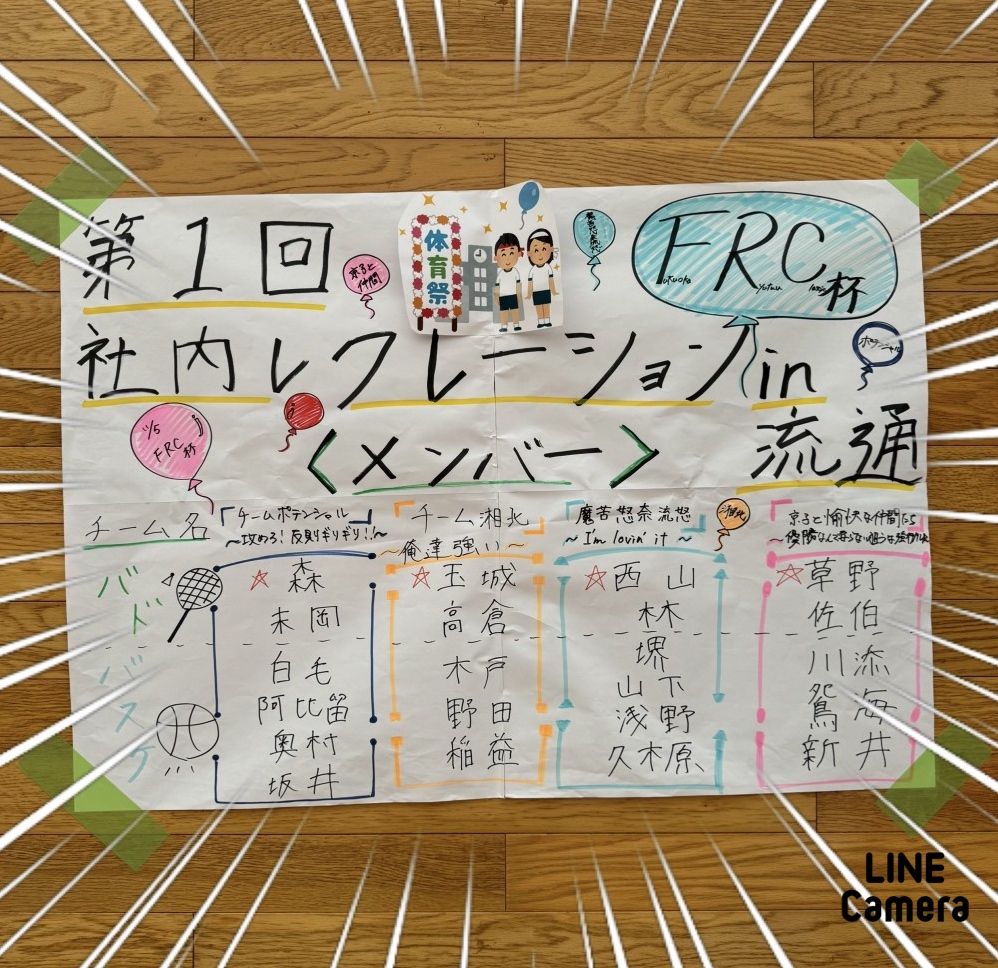 第1回
体育祭
京子と
仲間
FRC杯
Fukuoka
Ryutsu
社内レクレーションin
流通
ポテンシャル
11/5
FRC杯
<メンバー>
湘北
チーム名
「チームポテンシャル」
～攻めろ!反則ギリギリ!!～
「チーム湘北」
～俺達強い～
「魔苦怒奈流怒」
～I'm lovin' it～
京子と愉快な仲間たち
バド
☆森
末岡
☆玉城
高倉
☆西山
林
☆草野
佐伯
バスケ
白毛
阿比留
奥村
坂井
木戸
野田
稲益
堺
山下
浅野
久木原
川添
鴛海
新井
LINE
Camera